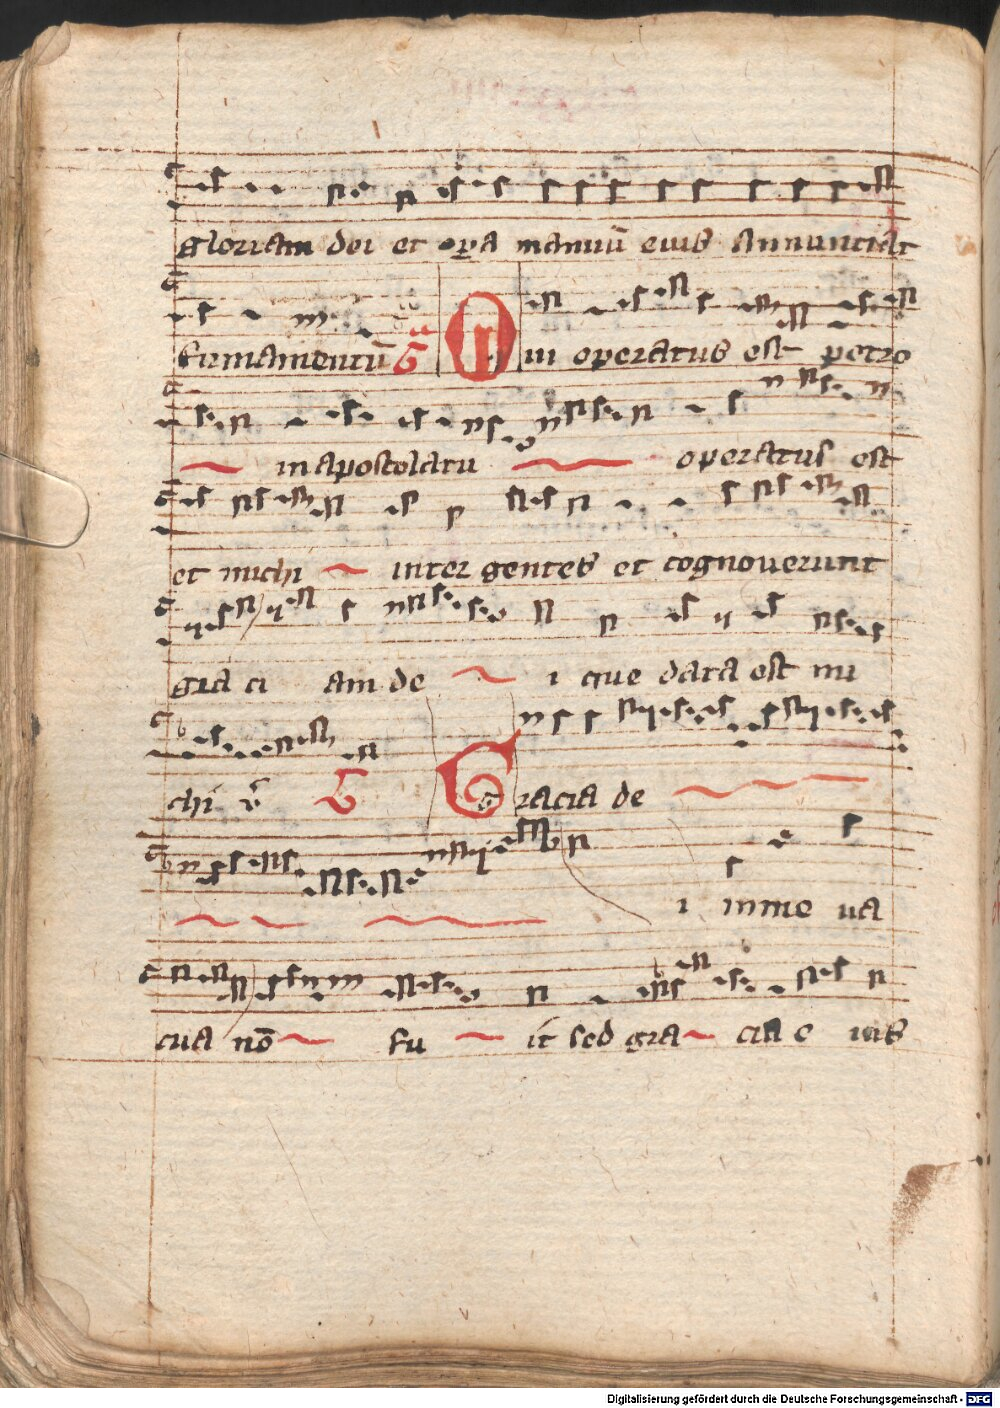 gloriam dei et oꝑa manuū eius annunciāt
firmamentū Q ui operatus est petro
in apostolatu operatus est
et michi inter gentes et cognoverunt
gra ci am de i que data est mi
chi G racia de
i in me ua
cua nō fu it sed gra cia e ius
Digitalisierung gefördert durch die Deutsche Forschungsgemeinschaft - DFG